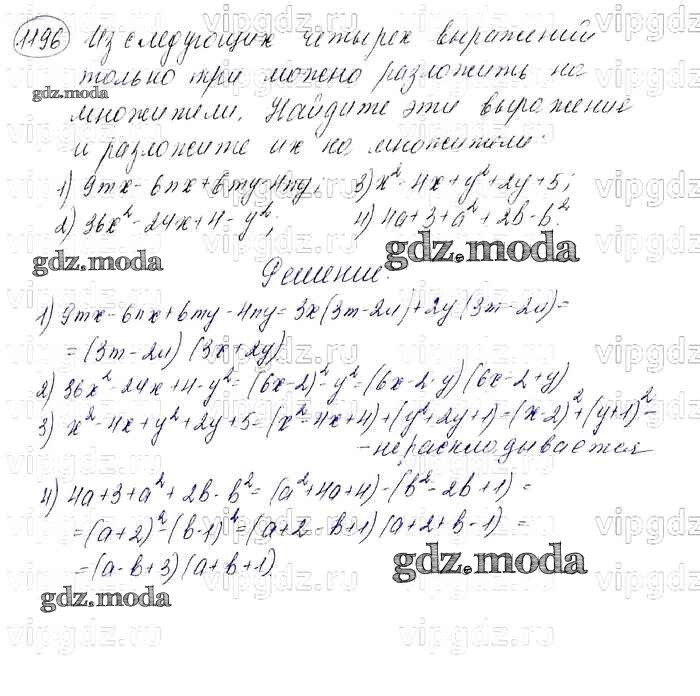 1196 Из следующих четырех выражений
только три можно разложить на
gdz.moda
множители. Найдите эти выражения
и разложите их на множители:
1) 9mx-6nx+6my-4ny; 3) x²-4x+y²+2y+5;
2) 36x²-24x+4-y²; 4) 4a+3+a²+2b-b².
gdz.moda gdz.moda
Решение.
1) 9mx-6nx+6my-4ny=3x(3m-2n)+2y(3m-2n)=
=(3m-2n)(3x+2y)
2) 36x²-24x+4-y²=(6x-2)²-y²=(6x-2-y)(6x-2+y)
3) x²-4x+y²+2y+5=(x²-4x+4)+(y²+2y+1)=(x-2)²+(y+1)²-
-не раскладывается
4) 4a+3+a²+2b-b²=(a²+4a+4)-(b²-2b+1)=
=(a+2)²-(b-1)²=(a+2-b+1)(a+2+b-1)=
gdz.moda
=(a-b+3)(a+b+1).
gdz.moda
vipgdz.ru